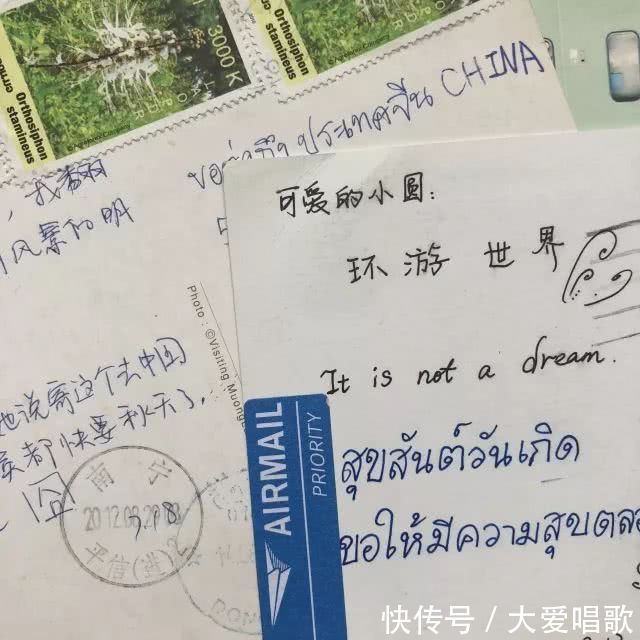 Orthosiphon
stamineus
3000 K
Orthosiphon
stamineus
ประเทศจีน CHINA
，我
风景的明
Photo : ©Visiting Muong
她说寄这个去中国
都快要秋天了.
囧
南六
2012.08.28
平信(进)2
可爱的小圆:
环游世界
It is not a dream.
AIRMAIL
PRIORITY
สุขสันต์วันเกิด
ขอให้มีความสุขตลอ
快传号 / 大爱唱歌